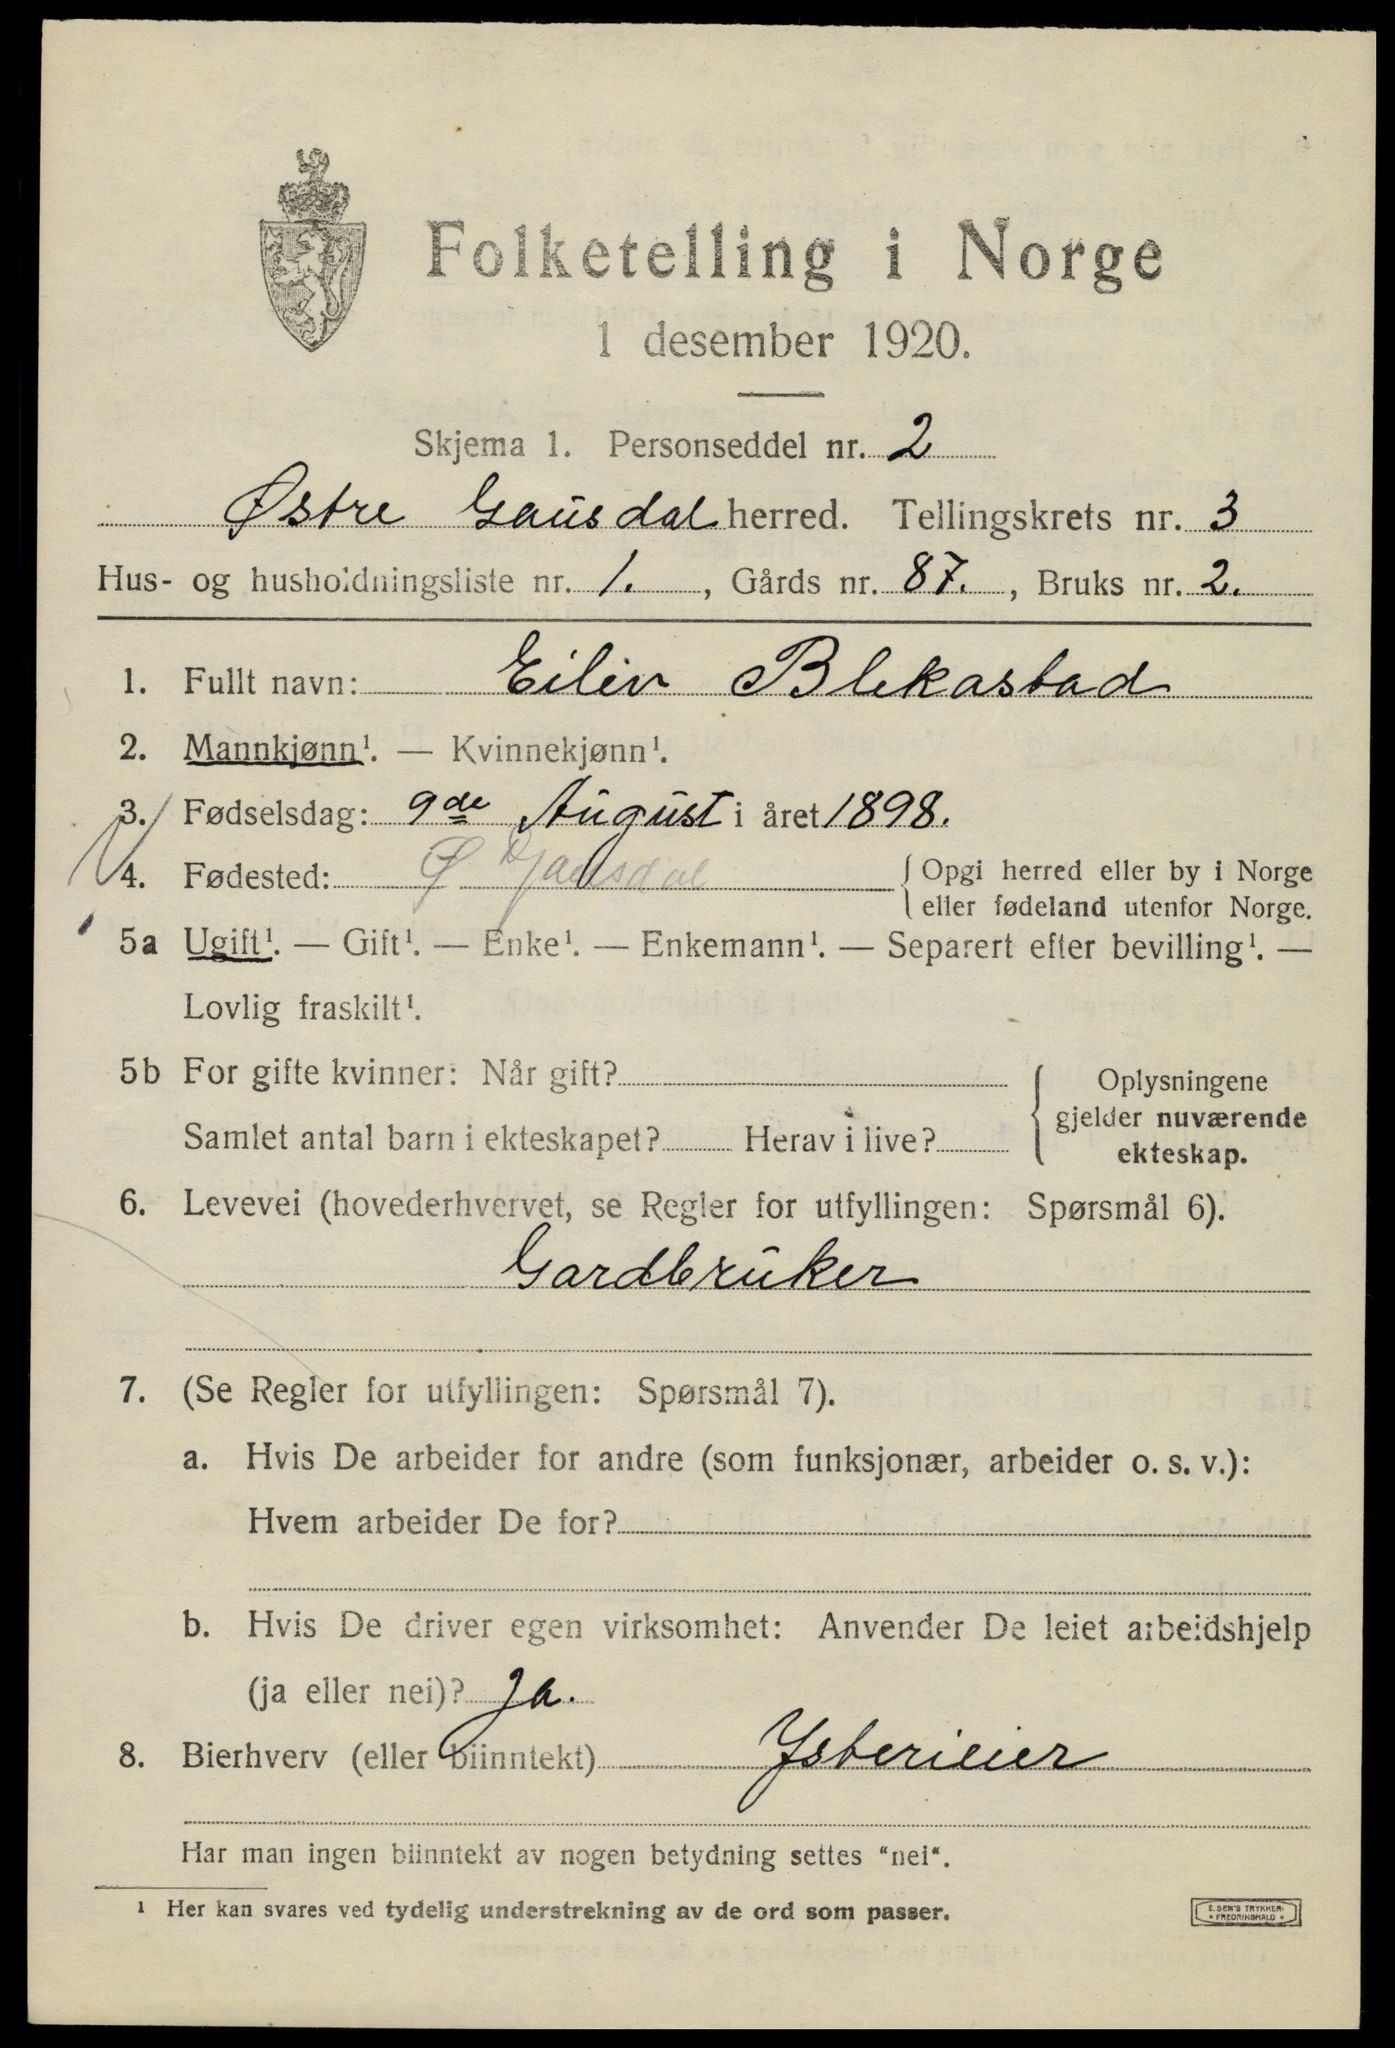 Folketelling i Norge
1 desember 1920.
Skjema 1. Personseddel nr. 2
Østre Gausdal herred. Tellingskrets nr. 3
Hus- og husholdningsliste nr. 1. , Gårds nr. 87. , Bruks nr. 2.
1. Fullt navn: Eiliv Blekastad
2. Mannkjønn¹. — Kvinnekjønn¹.
3. Fødselsdag: 9de August i året 1898.
4. Fødested: Ø Gausdal { Opgi herred eller by i Norge
eller fødeland utenfor Norge.
5a Ugift¹. — Gift¹. — Enke¹. — Enkemann¹. — Separert efter bevilling¹. —
Lovlig fraskilt¹.
5b For gifte kvinner: Når gift?
Samlet antal barn i ekteskapet? Herav i live?
{ Oplysningene
gjelder nuværende
ekteskap.
6. Levevei (hovederhvervet, se Regler for utfyllingen: Spørsmål 6).
Gardbruker
7. (Se Regler for utfyllingen: Spørsmål 7).
a. Hvis De arbeider for andre (som funksjonær, arbeider o. s. v.):
Hvem arbeider De for?
b. Hvis De driver egen virksomhet: Anvender De leiet arbeidshjelp
(ja eller nei)? Ja.
8. Bierhverv (eller biinntekt) Ysterieier
Har man ingen biinntekt av nogen betydning settes "nei".
¹ Her kan svares ved tydelig understrekning av de ord som passer.
E. SEM'S TRYKKERI
* FREDRIKSHALD *